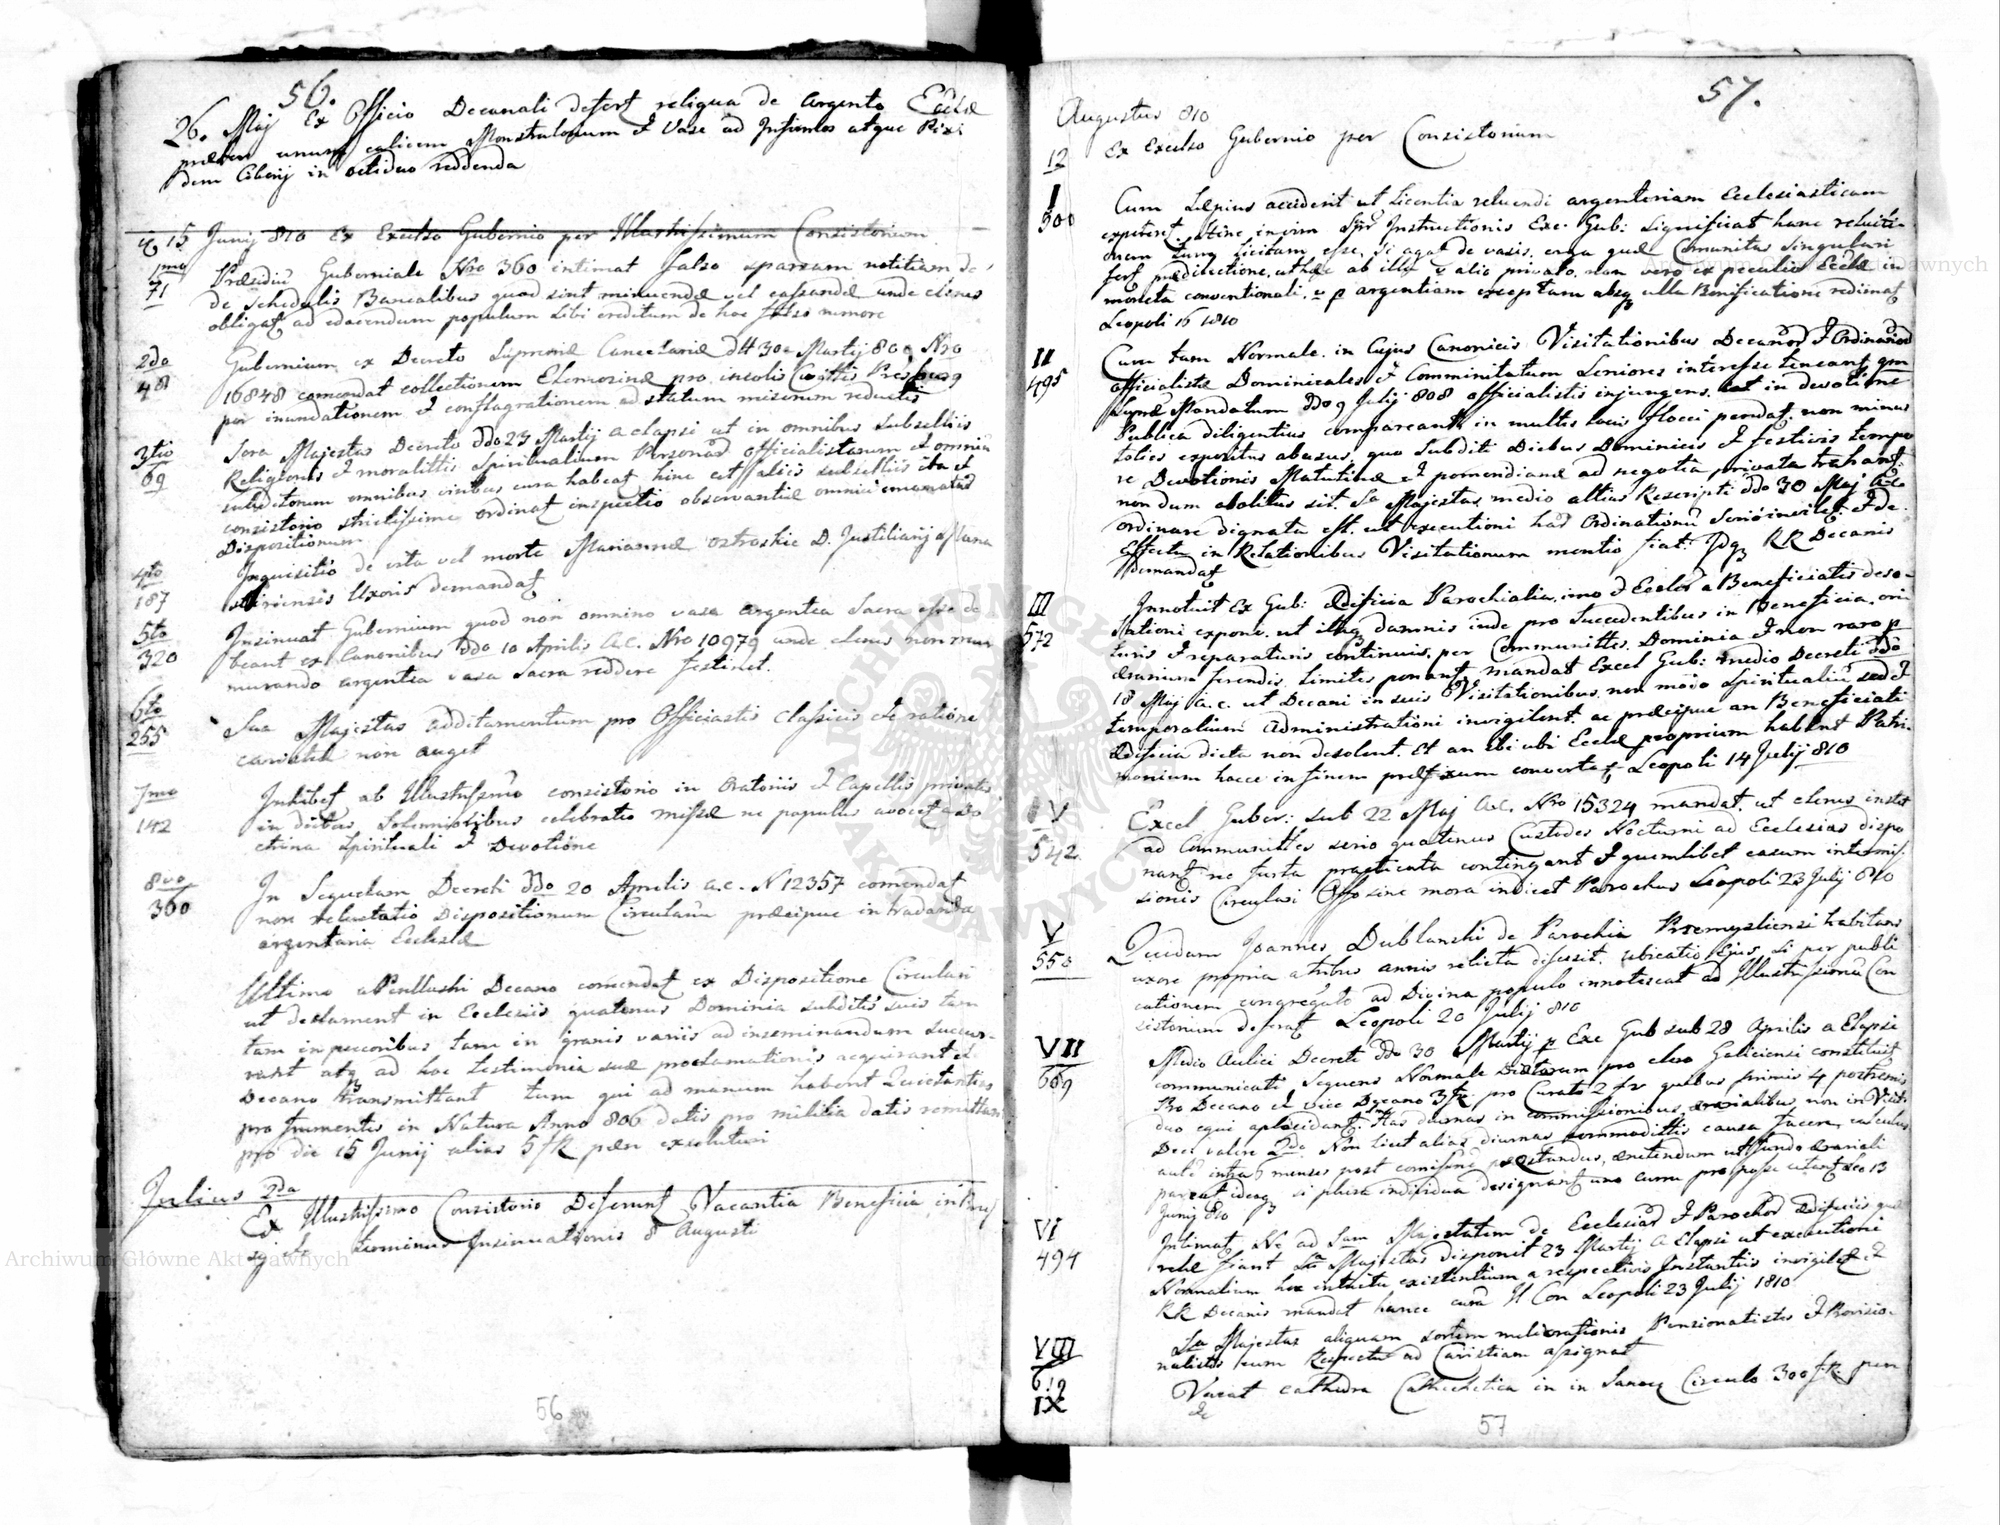 56.
26. Maij Ex Officio Decanali defert reliqua de Argento Ecclae
praeter unum calicem Monstralorium et Vase ad Infirmos atque Pixi
dem Ciborij in octiduo reddenda
15 Junij 810 Ex Excelso Gubernio per Illustrissimum Consistorium
1mo Praesidiu Guberniale Nro 360 intimat falso sparsam notitiam de
71 de Schedulis Bancalibus quod sint minuendae vel cassandae unde clerus
obligat ad edocendum populum sibi creditum de hoc falso rumore
2do Gubernium ex Decreto Supremae Cancelariae 30 Martij 80 Nro
48 16848 comendat collectionem Elemosinae pro incolis
per inundationem et conflagrationem ad statum miserum reductis
3tio Sua Majestas Decreto ddo 23 Martij a elapsi ut in omnibus subselliis
69 Religionis et moralittis Spiritualium Personar officialistarum et omniu
subditorum omnibus viribus cura habeat hinc ut aliis subselliis ita et
consistorio strictissime ordinat inspectio observantiae omniu
Dispositionum
4to Inquisitio de vita vel morte Mariannae Ostroskie D. Justiliarij
187 Uxoris demandat
5to Insinuat Gubernium quod non omnino vasa argentea Sacra esse de
320 beant ex Canonibus ddo 10 Aprilis A.C. Nro 10979 unde clerus non
murando argentea vasa Sacra reddere festinet.
6to Sua Majestas additamentum pro Officiastis classicis et ratione
255 caristiae non auget
7mo Inhibet ab Illustrissimo consistorio in Oratoriis et Capellis privatis
142 in diebus Solennioribus celebratio missae ne populus avocet a do
ctrina Spirituali et Devotione
8vo In Sequelam Decreti ddo 20 Aprilis a.c. N 12357 comendat
360 non Dispositionum Circularium praecipue intradanda
argentaria Ecclesiae
Ultimo a Decano comendat ex Dispositione Circulari
ut declament in Ecclesiis quatenus Dominia subditis suis tam
tam in peccoribus tam in granis variis ad inseminandum succur-
rant atq ad hoc testimonia suae proclamationis acquirant et
Decano transmittant tum qui ad manum habent Quietantias
pro frumentis in Natura Anno 806 datis pro militia datis remittant
pro die 15 Junij alias 5 fR executuri
Julius 2da
Ex Illustrissimo Consistorio Deferunt Vacantia Beneficia in
terminus Insinuationis 8 Augusti
56
57.
Augustus 810
12 Ex Excelso Gubernio per Consistorium
I Cum Saepius acciderit ut Licentia reluendi argenteriam Ecclesiasticam
300 expeteret Instructionis Exc. Gub: Significat hanc reluiti-
onem licitam esse, si agat de vasis, erga quae Comunitas Singulari
fert praedilectione, uthae ab illa alio privato, non vero ex peculio Ecclae in
moneta conventionali, argentiam exceptam absq ulla Bonificatione redimat
Leopoli 16 1810
II Cum tam Normale, in Cujus Canonicis Visitationibus Decanor et Ordinarior
495 officialistae Dominicales et Comminitatum Seniores interesse teneant, qm
Mandatum ddo 9 Julij 808 officialistis injungens, ut in devotione
Publica diligentius compareant, in multis locis flocci pendat, non minus
toties expositus abusus, quo Subditi Diebus Dominicis et festivis tempo
re Devotionis Matutinae et pomeridianae ad negotia privata trahant
non dum abolitus sit, Sa Majestas medio altius Rescripti ddo 30 Maj a.c.
ordinare dignata est, ut executioni har Ordinationu Serio invilet et de
Effectu in Relationibus Visitationum mentio fiat. Idq RR Decanis
demandat
III Innotuit Ex Gub: Aedificia Parochialia, imo et Ecclar a Beneficiatis deso-
572 lationi exponi, ut itaq damnis inde pro Succedentibus in Beneficia, ori
turis et reparaturis continuis, per Communittes, Dominia et non raro p
aerarium ferendis, limites ponant, mandat Excel Gub: medio Decreti ddo
18 Maj a.c. ut Decani in suis Visitationibus, non modo Spiritualiu sed et
temporaliumi Administrationi invigilent, ac praecipue an Beneficiati
Aedificia dicta non desolent, et an ibi ubi Ecclae proprium habent Patri-
monium hocce in finem praefixum convertat Leopoli 14 Julij 810
IV Excel Guber: sub 22 Maj a.c. Nro 15324 mandat, ut clerus instet
542 ad Communittes serio quatenus Custodes Nocturni ad Ecclesias dispo
nant ne furta contingant et quemlibet casum intromis-
sionis Circulari Offo sine mora indicet Parochus Leopoli 23 Julij 810
V Quidam Joannes Dublanski de Parochia Przemysliensi habitans
558 uxore propria a tribus annis relicta discessit, ubicatio Ejus, si per publi
cationem congregato ad Divina populo innotescat ad Illustrissimu Con
sistorium deferat Leopoli 20 Julij 810
VII Medio Aulici Decreti ddo 30 Martij p Exc Gub sub 28 Aprilis a Elapsi
669 communicati Sequens Normale Diaetarum pro clero Galiciensi constituit
Pro Decano et vice Decano 3 fR pro Curato 2 fr quibus primis 4 postremis
duo equi aplacidant, Has diurnas in commissionibus, aerarialibus, non in Visit
Decl valere 2do Non licet alias diurnas commodittis causa facere, calculus
aute intra 3 menses post comisione praestandus, Aerarili
pateat ideoq si plura individua designant uno curru pro posse utant Leo 13
Junij 810
VI Intimat, Ne ad Sam Majestatem de Ecclesiar et Parochor Aedificiis
494 relae fiant Sa Majestas disponit 23 Martij a Elapsi ut executioni
Normalium hoc intuitu existentium a respectivis Instantiis invigilet et
RR Decanis mandat hance cura Il Con Leopoli 23 Julij 1810
VIII Sa Majestas aliquam sortem meliorationis Pensionatistis et Provisio-
612 nalistis cum Respectu ad Caristiam assignat
IX Vacat cathedra Cathechetica in in Sanoq Circulo 300 fR. pen
&c
57
Archiwum Główne Akt Dawnych
Archiwum Główne Akt Dawnych
ARCHIWUM GŁÓWNE AKT DAWNYCH